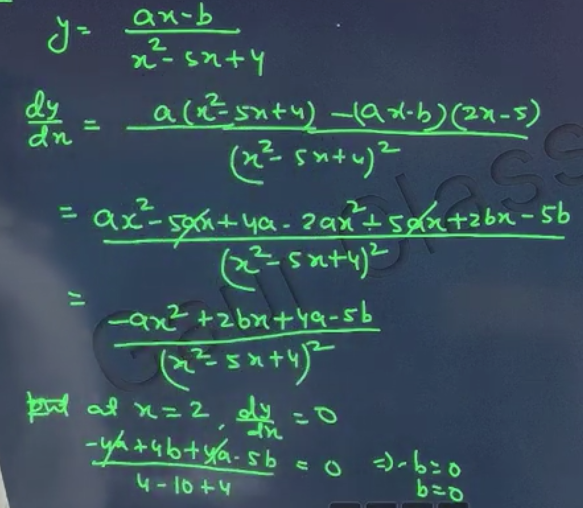 y = (ax-b)/(x²-5x+4)
dy/dx = (a(x²-5x+4) -(ax-b)(2x-5))/(x²-5x+4)²
= (ax²-5ax+4a-2ax²+5ax+2bx-5b)/(x²-5x+4)²
= (-ax²+2bx+4a-5b)/(x²-5x+4)²
at x=2, dy/dx = 0
(-4a+4b+4a-5b)/(4-10+4) = 0 ⇒ -b=0
b=0
Class